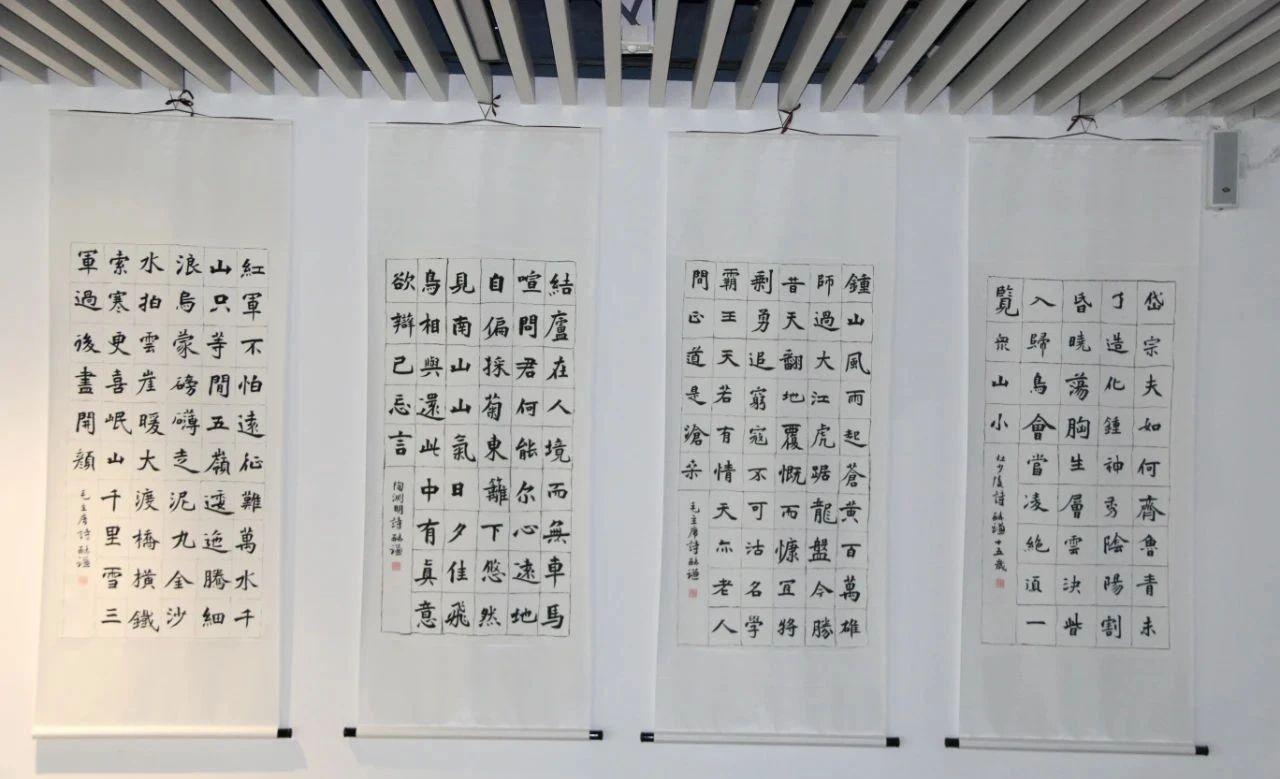 岱宗夫如何齊魯青未
了造化鍾神秀陰陽割
昏曉蕩胸生層雲決眥
入歸鳥會當凌絕頂一
覽衆山小
杜少陵詩 謙十五歲
鍾山風雨起蒼黃百萬雄
師過大江虎踞龍盤今勝
昔天翻地覆慨而慷宜將
剩勇追窮寇不可沽名學
霸王天若有情天亦老人
間正道是滄桑
毛主席詩 謙
結廬在人境而無車馬
喧問君何能尔心遠地
自偏採菊東籬下悠然
見南山山氣日夕佳飛
鳥相與還此中有真意
欲辯已忘言
陶渊明詩 謙
紅軍不怕遠征難萬水千
山只等閒五嶺逶迤騰細
浪烏蒙磅礴走泥丸金沙
水拍雲崖暖大渡橋橫鐵
索寒更喜岷山千里雪三
軍過後盡開顏
毛主席詩 謙